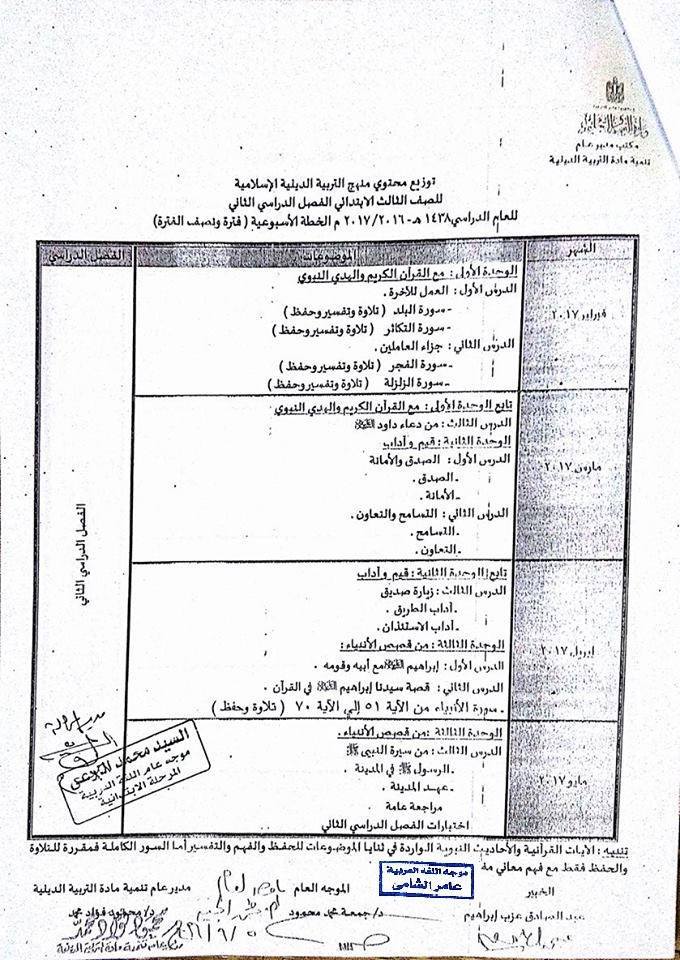 وزارة التربية والتعليم
مكتب مدير عام
تنمية مادة التربية الدينية
توزيع محتوي منهج التربية الدينية الإسلامية
للصف الثالث الابتدائي الفصل الدراسي الثاني
للعام الدراسي ١٤٣٨ هـ - ٢٠١٧/٢٠١٦ م الخطة الأسبوعية ( فترة ونصف الفترة )
الشهر
الموضوعات
الفصل الدراسي
فبراير ٢٠١٧
الوحدة الأولى : مع القرآن الكريم والهدي النبوي
الدرس الأول : العمل للآخرة .
- سورة البلد ( تلاوة وتفسير وحفظ )
- سورة التكاثر ( تلاوة وتفسير وحفظ )
الدرس الثاني : جزاء العاملين .
- سورة الفجر ( تلاوة وتفسير وحفظ )
- سورة الزلزلة ( تلاوة وتفسير وحفظ )
مارس ٢٠١٧
تابع الوحدة الأولى : مع القرآن الكريم والهدي النبوي
الدرس الثالث : من دعاء داود
الوحدة الثانية : قيم و آداب
الدرس الأول : الصدق والأمانة
- الصدق .
- الأمانة .
الدرس الثاني : التسامح والتعاون .
- التسامح .
- التعاون .
ابريل ٢٠١٧
تابع الوحدة الثانية : قيم و آداب
الدرس الثالث : زيارة صديق
- آداب الطريق .
- آداب الاستئذان .
الوحدة الثالثة : من قصص الأنبياء :
الدرس الأول : إبراهيم مع أبيه وقومه .
الدرس الثاني : قصة سيدنا إبراهيم في القرآن .
- سورة الأنبياء من الآية ٥١ إلي الآية ٧٠ ( تلاوة وحفظ )
مايو ٢٠١٧
الوحدة الثالثة : من قصص الأنبياء .
الدرس الثالث : من سيرة النبي ﷺ :
- الرسول ﷺ في المدينة .
- عهد المدينة .
مراجعة عامة
اختبارات الفصل الدراسي الثاني
الفصل الدراسي الثاني
السيد محمد
موجه عام اللغة العربية
المرحلة الابتدائية
تنبيه : الآيات القرآنية والأحاديث النبوية الواردة في ثنايا الموضوعات للحفظ والفهم والتفسير أما السور الكاملة فمقررة للتلاوة
والحفظ فقط مع فهم معاني
موجه اللغة العربية
عامر الشامى
الخبير
الموجه العام
مدير عام تنمية مادة التربية الدينية
عبد الصادق عزب إبراهيم
د/ جمعة محمد محمود
د/ محمود فؤاد محمد